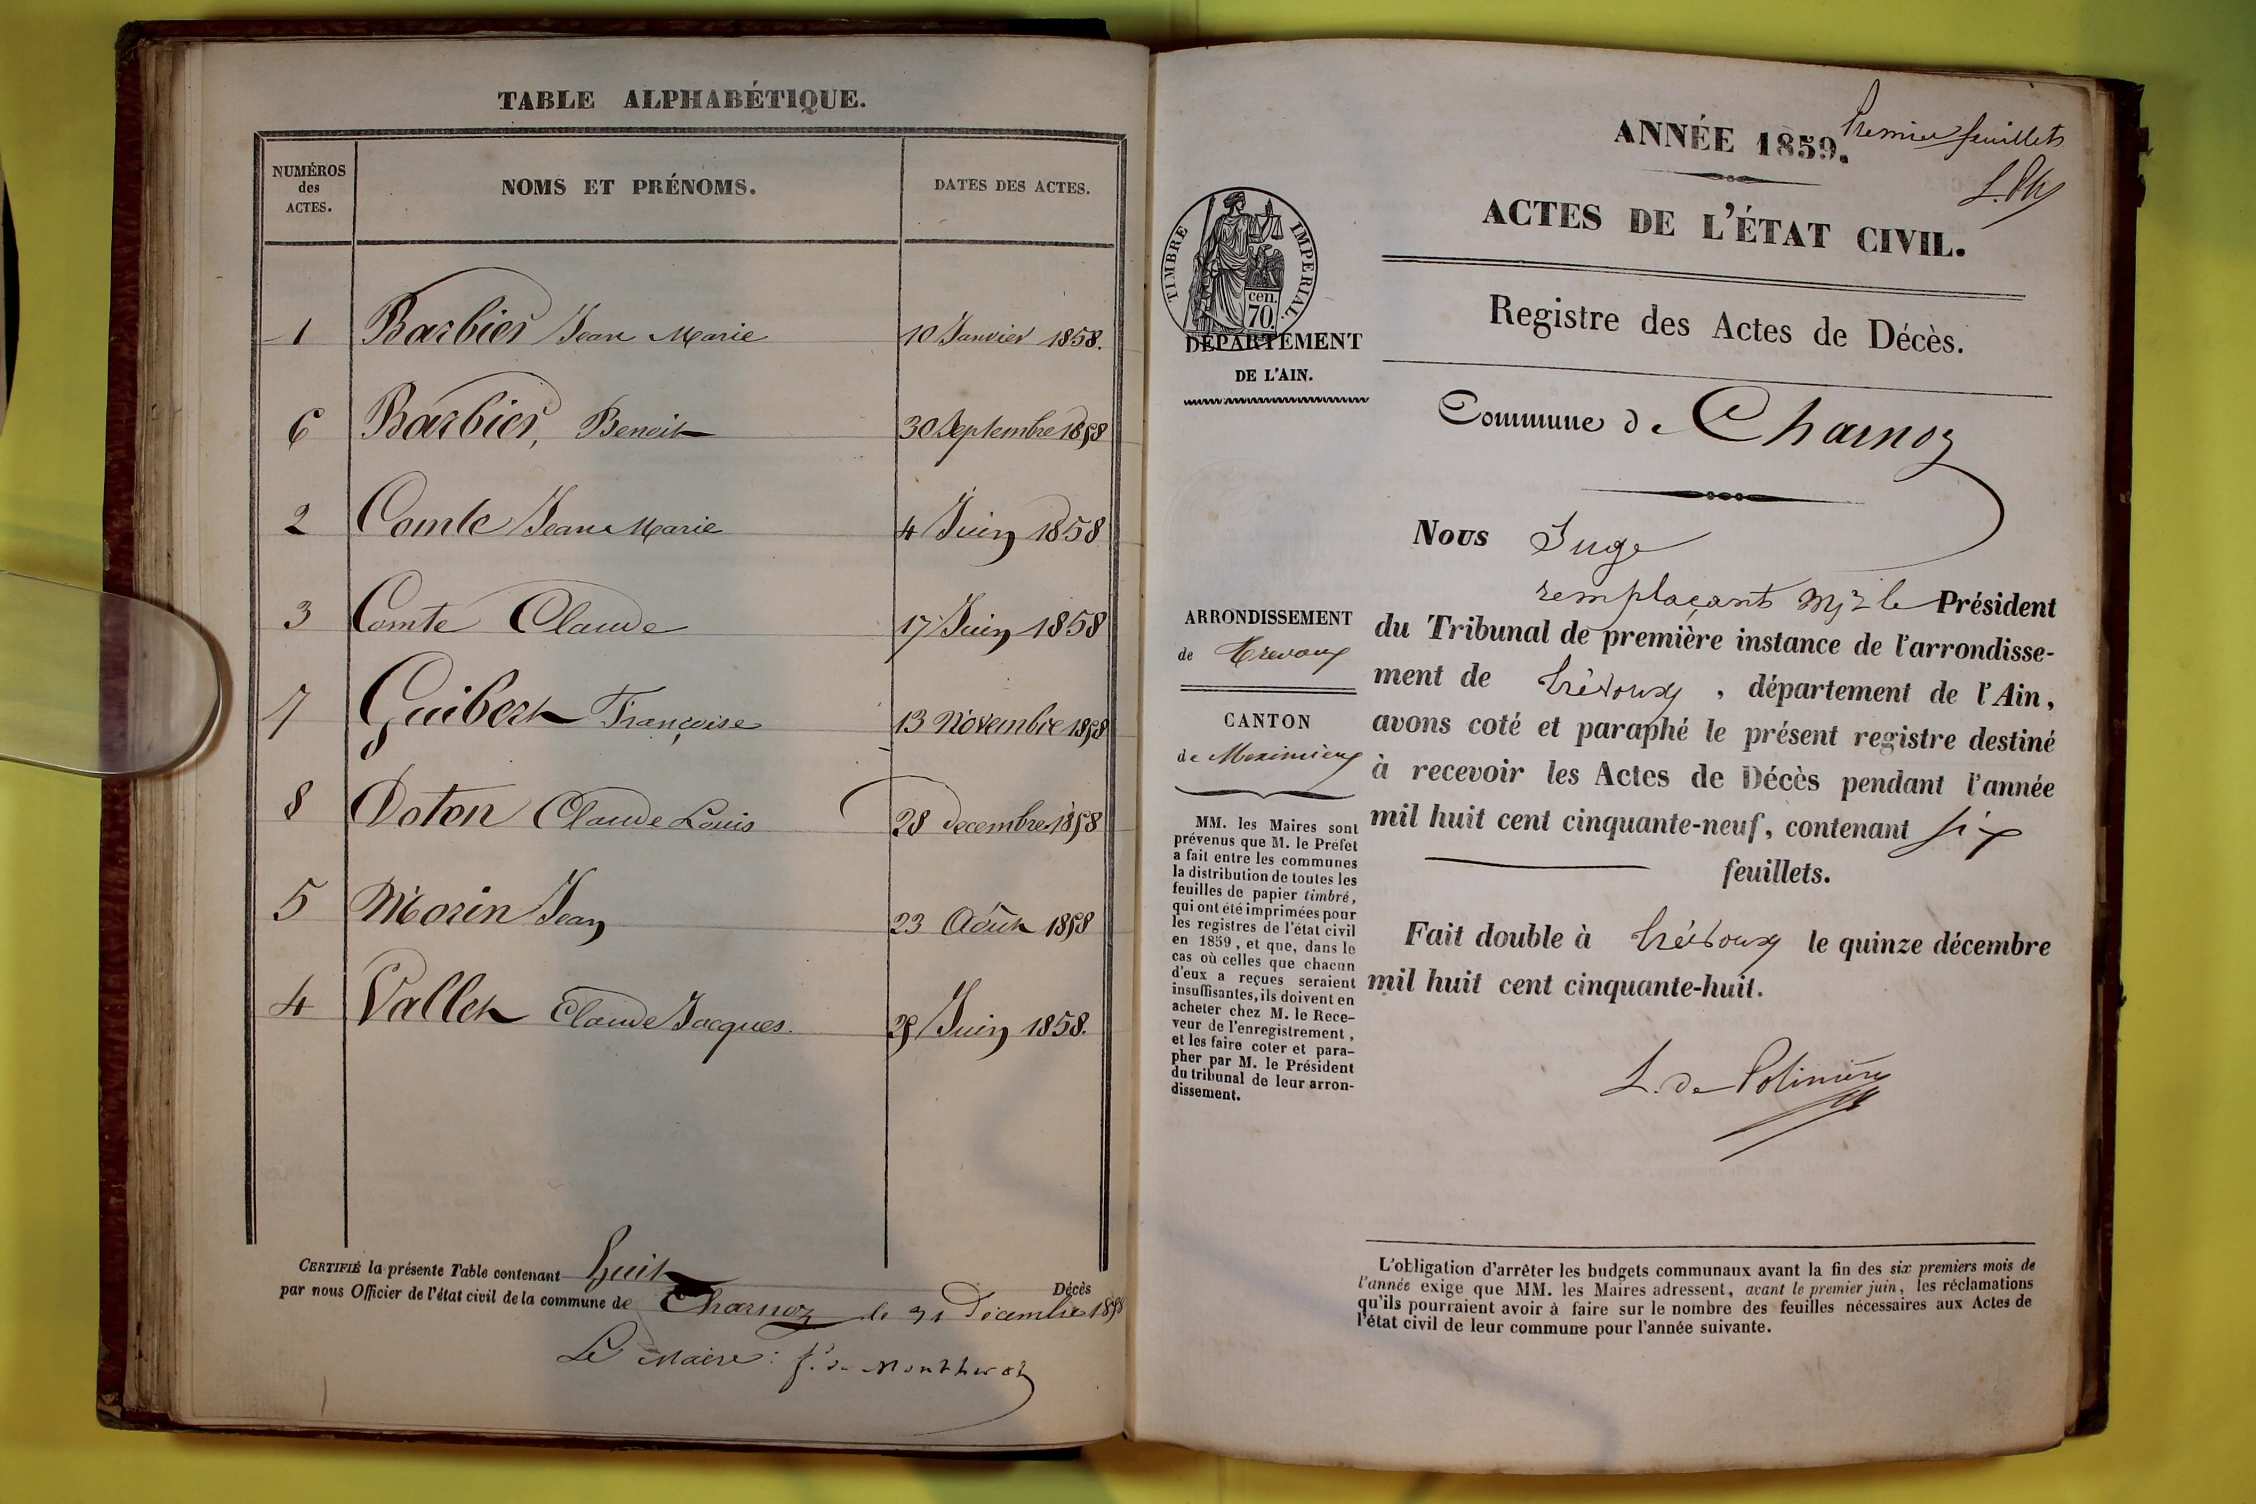 TABLE ALPHABÉTIQUE.
NUMÉROS des ACTES.
NOMS ET PRÉNOMS.
DATES DES ACTES.
1 Barbier Jean Marie 10 Janvier 1858.
6 Barbier, Benoit 30 Septembre 1858
2 Comte Jean Marie 4 Juin 1858
3 Comte Claude 17 Juin 1858
7 Guibert Françoise 13 Novembre 1858
8 Doton Claude Louis 28 decembre 1858
5 Morin Jean 23 Août 1858
4 Vallet Claude Jacques. Juin 1858.
CERTIFIÉ la présente Table contenant huit Décès
par nous Officier de l'état civil de la commune de Charnoz le 31 Décembre 1858
Le Maire:
Premier feuillet
ANNÉE 1859.
ACTES DE L'ÉTAT CIVIL.
TIMBRE IMPERIAL.
cen.
70.
Registre des Actes de Décès.
DÉPARTEMENT
DE L'AIN.
Commune de Charnoz
Nous Juge
remplaçant Mr le Président
du Tribunal de première instance de l'arrondisse-
ment de Trévoux, département de l'Ain,
avons coté et paraphé le présent registre destiné
à recevoir les Actes de Décès pendant l'année
mil huit cent cinquante-neuf, contenant six
feuillets.
Fait double à Trévoux le quinze décembre
mil huit cent cinquante-huit.
L. de Polinière
ARRONDISSEMENT
de Trevoux
CANTON
de Meximieux
MM. les Maires sont
prévenus que M. le Préfet
a fait entre les communes
la distribution de toutes les
feuilles de papier timbré,
qui ont été imprimées pour
les registres de l'état civil
en 1859, et que, dans le
cas où celles que chacun
d'eux a reçues seraient
insuffisantes, ils doivent en
acheter chez M. le Rece-
veur de l'enregistrement,
et les faire coter et para-
pher par M. le Président
du tribunal de leur arron-
dissement.
L'obligation d'arrêter les budgets communaux avant la fin des six premiers mois de
l'année exige que MM. les Maires adressent, avant le premier juin, les réclamations
qu'ils pourraient avoir à faire sur le nombre des feuilles nécessaires aux Actes de
l'état civil de leur commune pour l'année suivante.